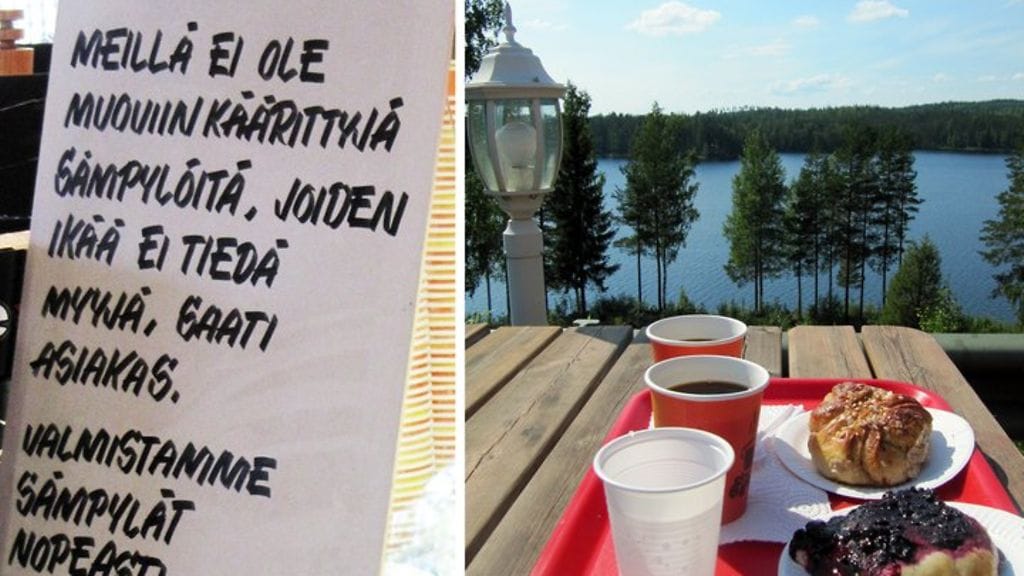 MEILLÄ EI OLE
MUOVIIN KÄÄRITTYJÄ
SÄMPYLÖITÄ, JOIDEN
IKÄÄ EI TIEDÄ
MYYJÄ, SAATI
ASIAKAS.
VALMISTAMME
SÄMPYLÄT
NOPEASTI